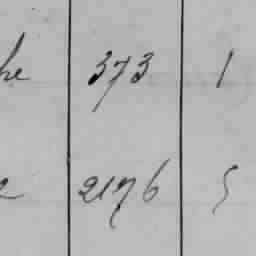 he 373 1
e 2176 5